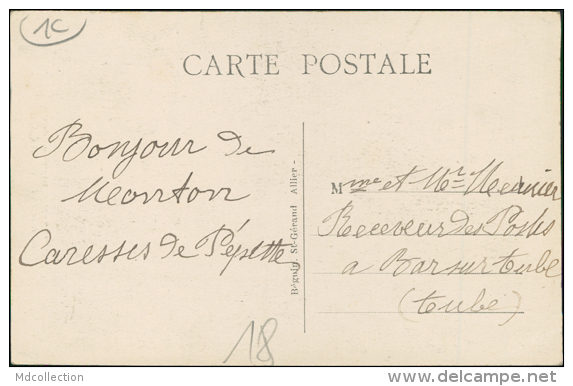 1C
CARTE POSTALE
Bonjour de
Mouton
Caresses de Pépette
Béguin, St-Gérand Allier -
Mme et Mr Meunier
Receveur des Postes
a Bar sur Aube
(Aube)
18
Mdcollection
http://www.delcampe.net